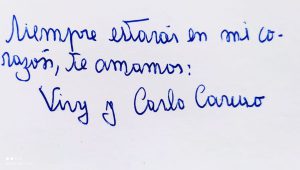 Siempre estarás en mi co-
razón, te amamos:
Viny y Carlo Caruso